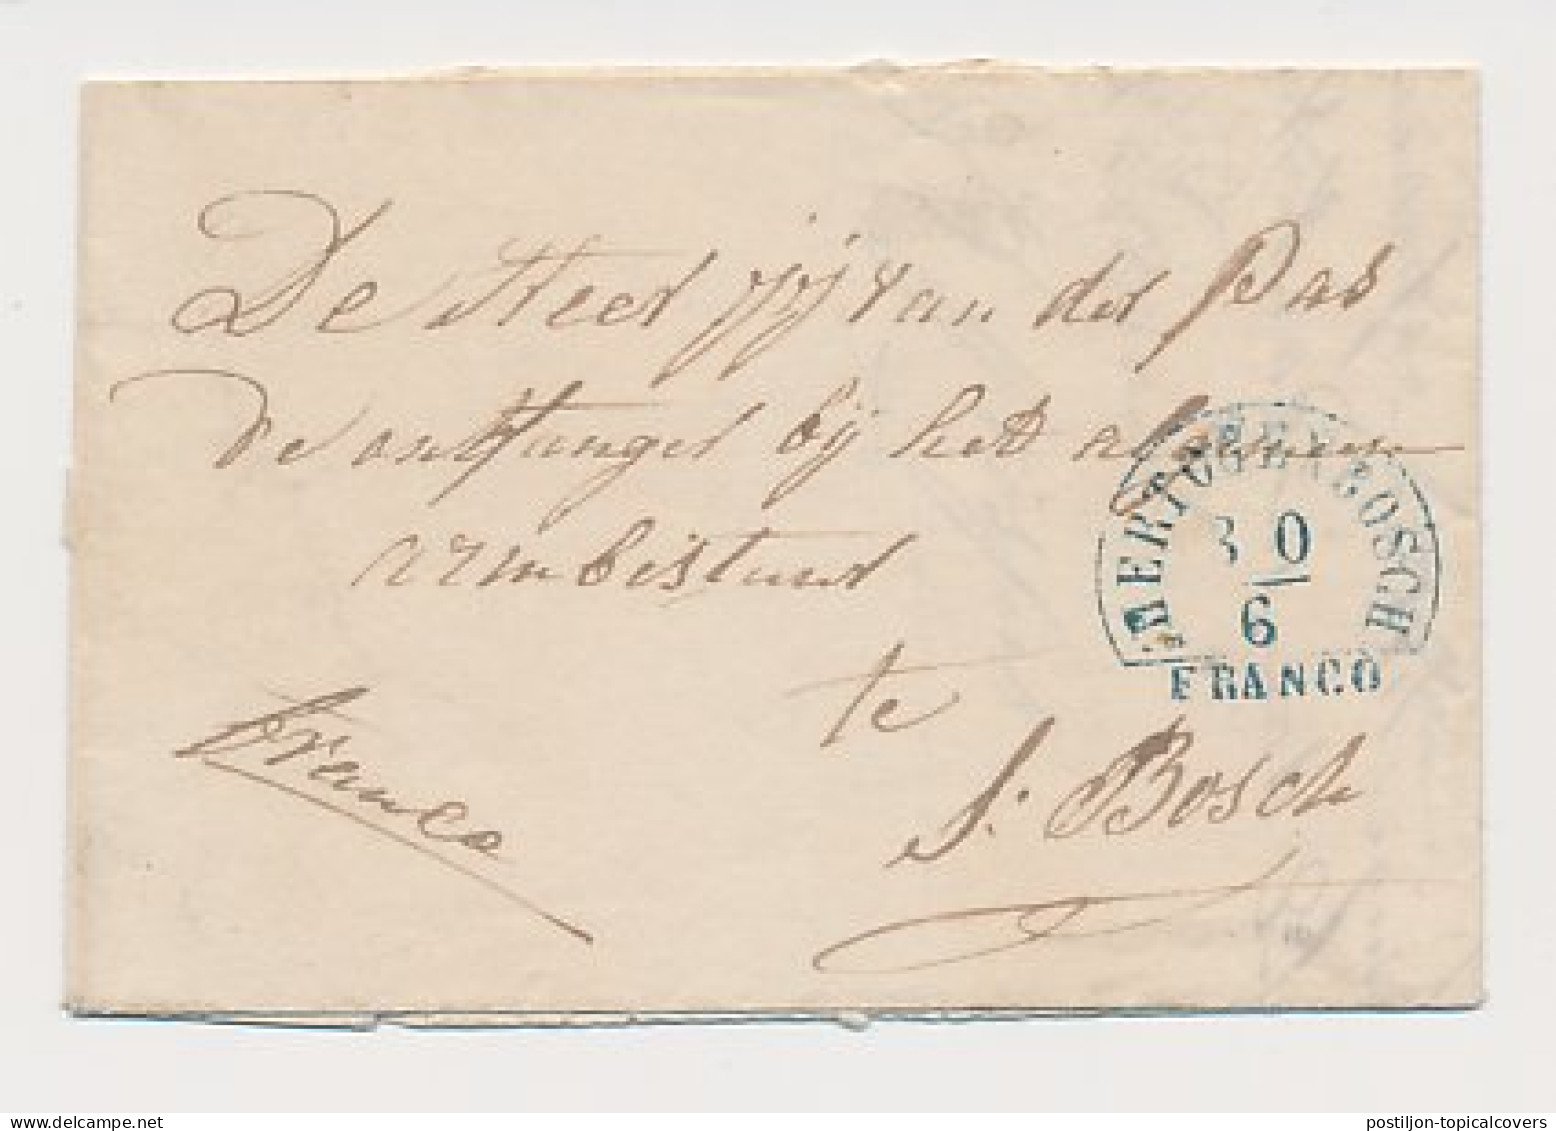 De Heer J J van der Pas
De ontfanger bij het algemeen
armbestuur
te
S: Bosch
Franco
'S HERTOGENBOSCH
30
6
FRANCO
Delcampe.net
postiljon-topicalcovers